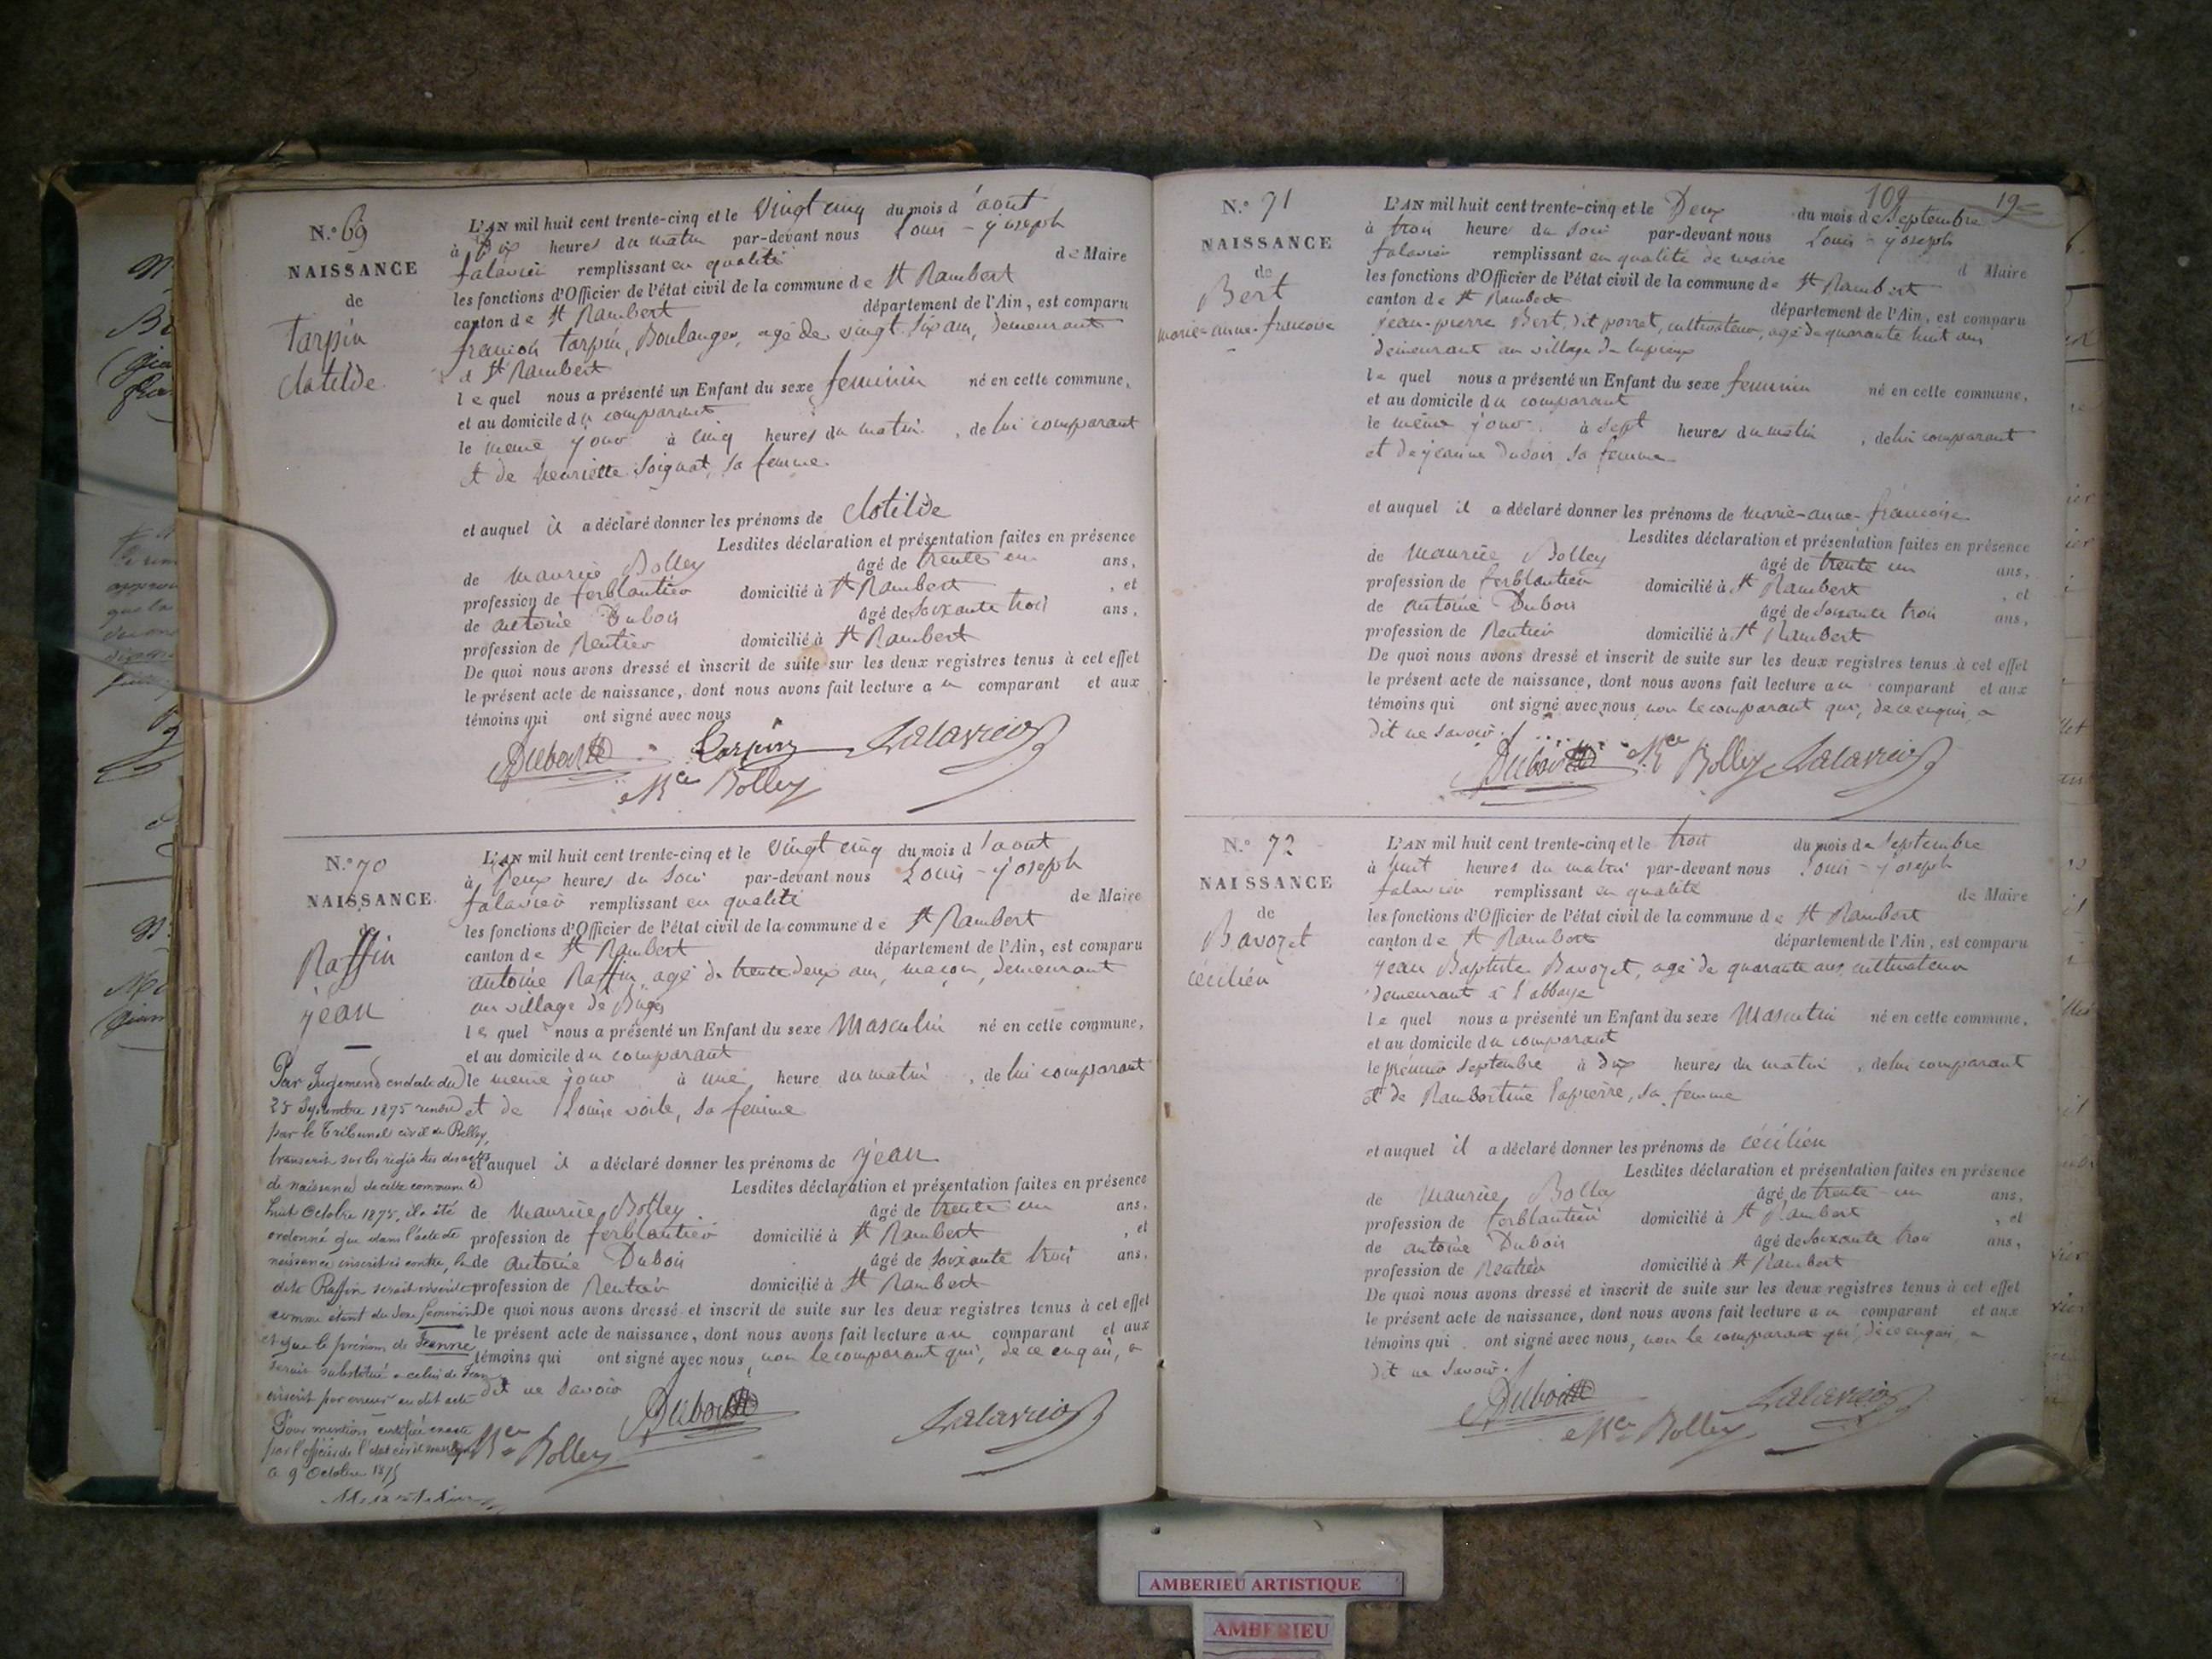 N.º 69
NAISSANCE
de
Tarpin
Clotilde
L'AN mil huit cent trente-cinq et le Vingt cinq du mois d'août
à Dix heures du matin par-devant nous Louis-Joseph
falavier remplissant en qualité de Maire
les fonctions d'Officier de l'état civil de la commune de St Rambert
canton de St Rambert département de l'Ain, est comparu
françois tarpin, Boulanger, agé de vingt six ans, demeurant
à St Rambert
lequel nous a présenté un Enfant du sexe feminin né en cette commune,
et au domicile du comparant
le même jour à cinq heures du matin, de lui comparant
et de henriette Soignat, sa femme
et auquel il a déclaré donner les prénoms de Clotilde
Lesdites déclaration et présentation faites en présence
de Maurice Bolley âgé de trente un ans,
profession de ferblantier domicilié à St Rambert, et
de antoine Dubois âgé de soixante trois ans,
profession de Rentier domicilié à St Rambert
De quoi nous avons dressé et inscrit de suite sur les deux registres tenus à cet effet
le présent acte de naissance, dont nous avons fait lecture au comparant et aux
témoins qui ont signé avec nous
Dubois Tarpin falavier
Mce Bolley
N.º 70
NAISSANCE
de
Raffin
jean
L'AN mil huit cent trente-cinq et le Vingt cinq du mois d'août
à Deux heures du Soir par-devant nous Louis-Joseph
falavier remplissant en qualité de Maire
les fonctions d'Officier de l'état civil de la commune de St Rambert
canton de St Rambert département de l'Ain, est comparu
antoine Raffin, agé de trente deux ans, maçon, demeurant
au village de Buges
lequel nous a présenté un Enfant du sexe Masculin né en cette commune,
et au domicile du comparant
le même jour à une heure du matin, de lui comparant
et de Louise voile, sa femme
et auquel il a déclaré donner les prénoms de jean
Lesdites déclaration et présentation faites en présence
de Maurice Bolley âgé de trente un ans,
profession de ferblantier domicilié à St Rambert, et
de antoine Dubois âgé de soixante trois ans,
profession de Rentier domicilié à St Rambert
De quoi nous avons dressé et inscrit de suite sur les deux registres tenus à cet effet
le présent acte de naissance, dont nous avons fait lecture au comparant et aux
témoins qui ont signé avec nous, non le comparant qui, de ce enquis, a
dit ne savoir
Dubois falavier
Mce Bolley
Par Jugement en date du
25 Septembre 1875 rendu
par le Tribunal civil de Belley,
transcrit sur les registres des actes
de naissance de cette commune le
huit Octobre 1875, il a été
ordonné que dans l'acte de
naissance inscrit ci contre, la
dite Raffin serait inscrite
comme étant du sexe féminin
et que le prénom de Jeanne
serait substitué a celui de Jean
inscrit par erreur au dit acte
Pour mention certifiée exacte
par l'officier de l'état civil soussigné
le 9 Octobre 1875
109 19
N.º 71
NAISSANCE
de
Bert
marie-anne-francoise
L'AN mil huit cent trente-cinq et le Deux du mois de Septembre
à trois heures du soir par-devant nous Louis-Joseph
falavier remplissant en qualité de maire d Maire
les fonctions d'Officier de l'état civil de la commune de St Rambert
canton de St Rambert département de l'Ain, est comparu
jean-pierre Bert, dit porret, cultivateur, agé de quarante huit ans
demeurant au village de lupieux
lequel nous a présenté un Enfant du sexe feminin né en cette commune,
et au domicile du comparant
le même jour à sept heures du matin, de lui comparant
et de jeanne Dubois sa femme
et auquel il a déclaré donner les prénoms de marie-anne-francoise
Lesdites déclaration et présentation faites en présence
de Maurice Bolley âgé de trente un ans,
profession de ferblantier domicilié à St Rambert, et
de antoine Dubois âgé de soixante trois ans,
profession de Rentier domicilié à St Rambert
De quoi nous avons dressé et inscrit de suite sur les deux registres tenus à cet effet
le présent acte de naissance, dont nous avons fait lecture au comparant et aux
témoins qui ont signé avec nous, non le comparant qui, de ce enquis, a
dit ne savoir
Dubois Mce Bolley falavier
N.º 72
NAISSANCE
de
Bavozet
cécilien
L'AN mil huit cent trente-cinq et le trois du mois de Septembre
à huit heures du matin par-devant nous Louis-Joseph
falavier remplissant en qualité de Maire
les fonctions d'Officier de l'état civil de la commune de St Rambert
canton de St Rambert département de l'Ain, est comparu
jean Baptiste Bavozet, agé de quarante ans, cultivateur
demeurant à l'abbaye
lequel nous a présenté un Enfant du sexe Masculin né en cette commune,
et au domicile du comparant
le premier septembre à dix heures du matin, de lui comparant
et de Rambertine Lapierre, sa femme
et auquel il a déclaré donner les prénoms de cécilien
Lesdites déclaration et présentation faites en présence
de Maurice Bolley âgé de trente un ans,
profession de ferblantier domicilié à St Rambert, et
de antoine Dubois âgé de soixante trois ans,
profession de Rentier domicilié à St Rambert
De quoi nous avons dressé et inscrit de suite sur les deux registres tenus à cet effet
le présent acte de naissance, dont nous avons fait lecture au comparant et aux
témoins qui ont signé avec nous, non le comparant qui, de ce enquis, a
dit ne savoir
Dubois falavier
Mce Bolley
AMBERIEU ARTISTIQUE
AMBERIEU